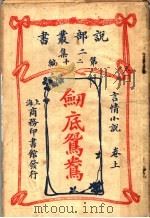 說部叢書
第二集
二十編
言情小說
卷上
劒底鴛鴦
上海商務印書館發行